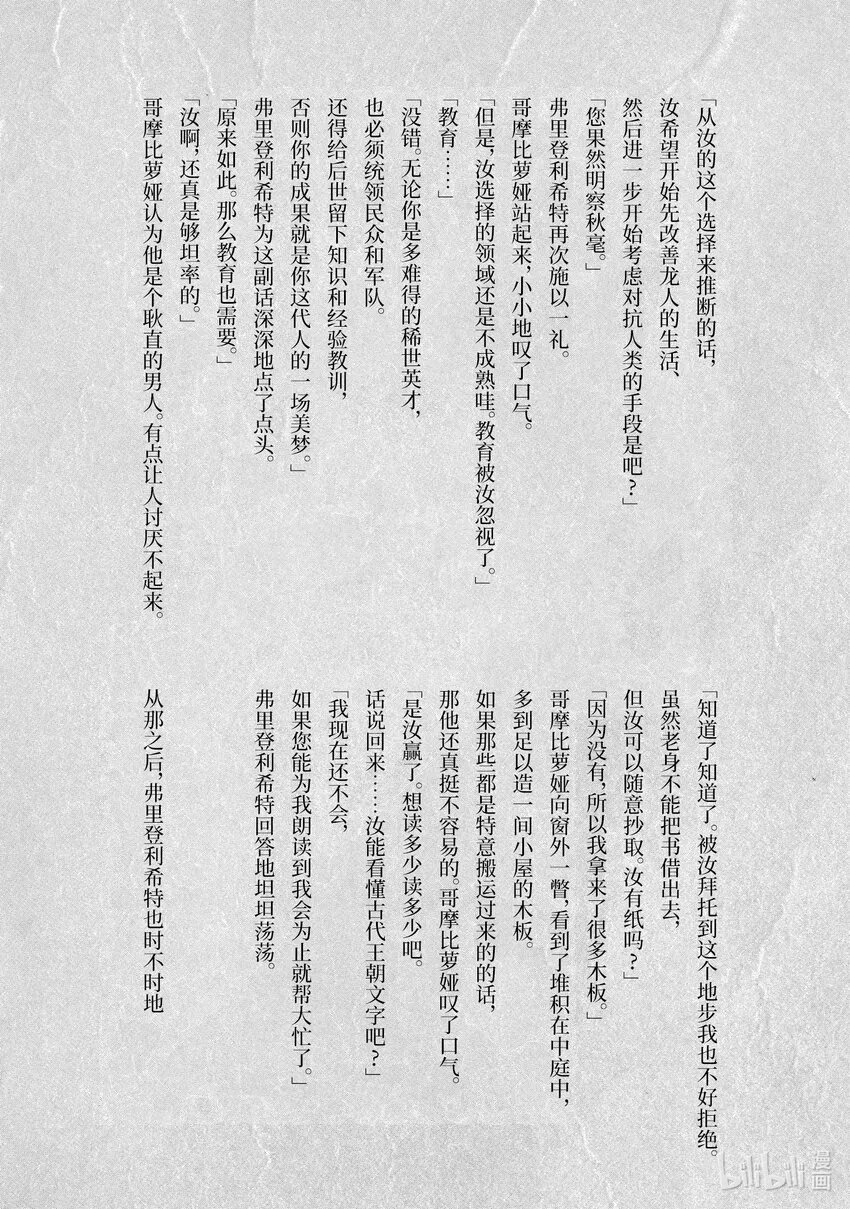 「从汝的这个选择来推断的话，
汝希望开始先改善龙人的生活、
然后进一步开始考虑对抗人类的手段是吧？」
「您果然明察秋毫。」
弗里登利希特再次施以一礼。
哥摩比萝娅站起来，小小地叹了口气。
「但是，汝选择的领域还是不成熟哇。教育被汝忽视了。」
「教育……」
「没错。无论你是多难得的稀世英才，
也必须统领民众和军队。
还得给后世留下知识和经验教训，
否则你的成果就是你这代人的一场美梦。」
弗里登利希特为这副话深深地点了点头。
「原来如此。那么教育也需要。」
「汝啊，还真是够坦率的。」
哥摩比萝娅认为他是个耿直的男人。有点让人讨厌不起来。
「知道了知道了。被汝拜托到这个地步我也不好拒绝。
虽然老身不能把书借出去，
但汝可以随意抄取。汝有纸吗？」
「因为没有，所以我拿来了很多木板。」
哥摩比萝娅向窗外一瞥，看到了堆积在中庭中，
多到足以造一间小屋的木板。
如果那些都是特意搬运过来的的话，
那他还真挺不容易的。哥摩比萝娅叹了口气。
「是汝赢了。想读多少读多少吧。
话说回来……汝能看懂古代王朝文字吧？」
「我现在还不会，
如果您能为我朗读到我会为止就帮大忙了。」
弗里登利希特回答地坦坦荡荡。
从那之后，弗里登利希特也时不时地
bilibili 漫画